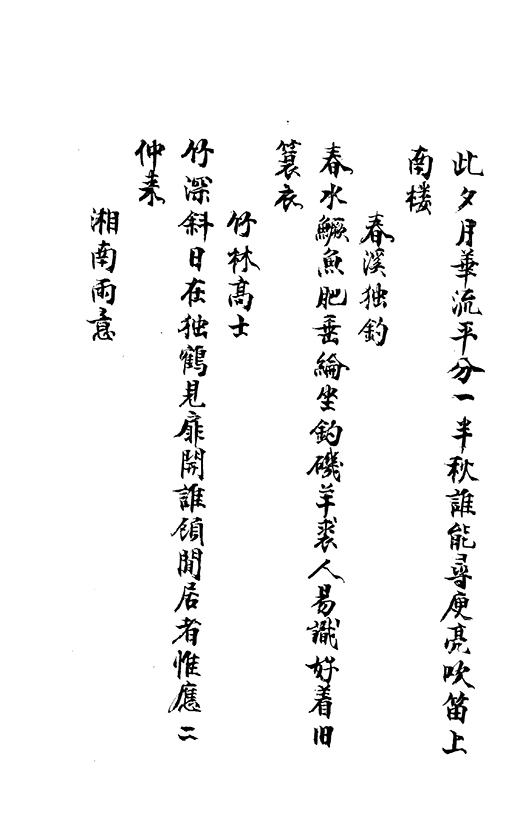 此夕月華流平分一半秋誰能尋庾亮吹笛上
南楼
春溪独釣
春水鱖魚肥垂綸坐釣磯羊裘人易識好着旧
蓑衣
竹林高士
竹深斜日在独鶴見扉開誰傾閒居者惟應二
仲来
湘南雨意